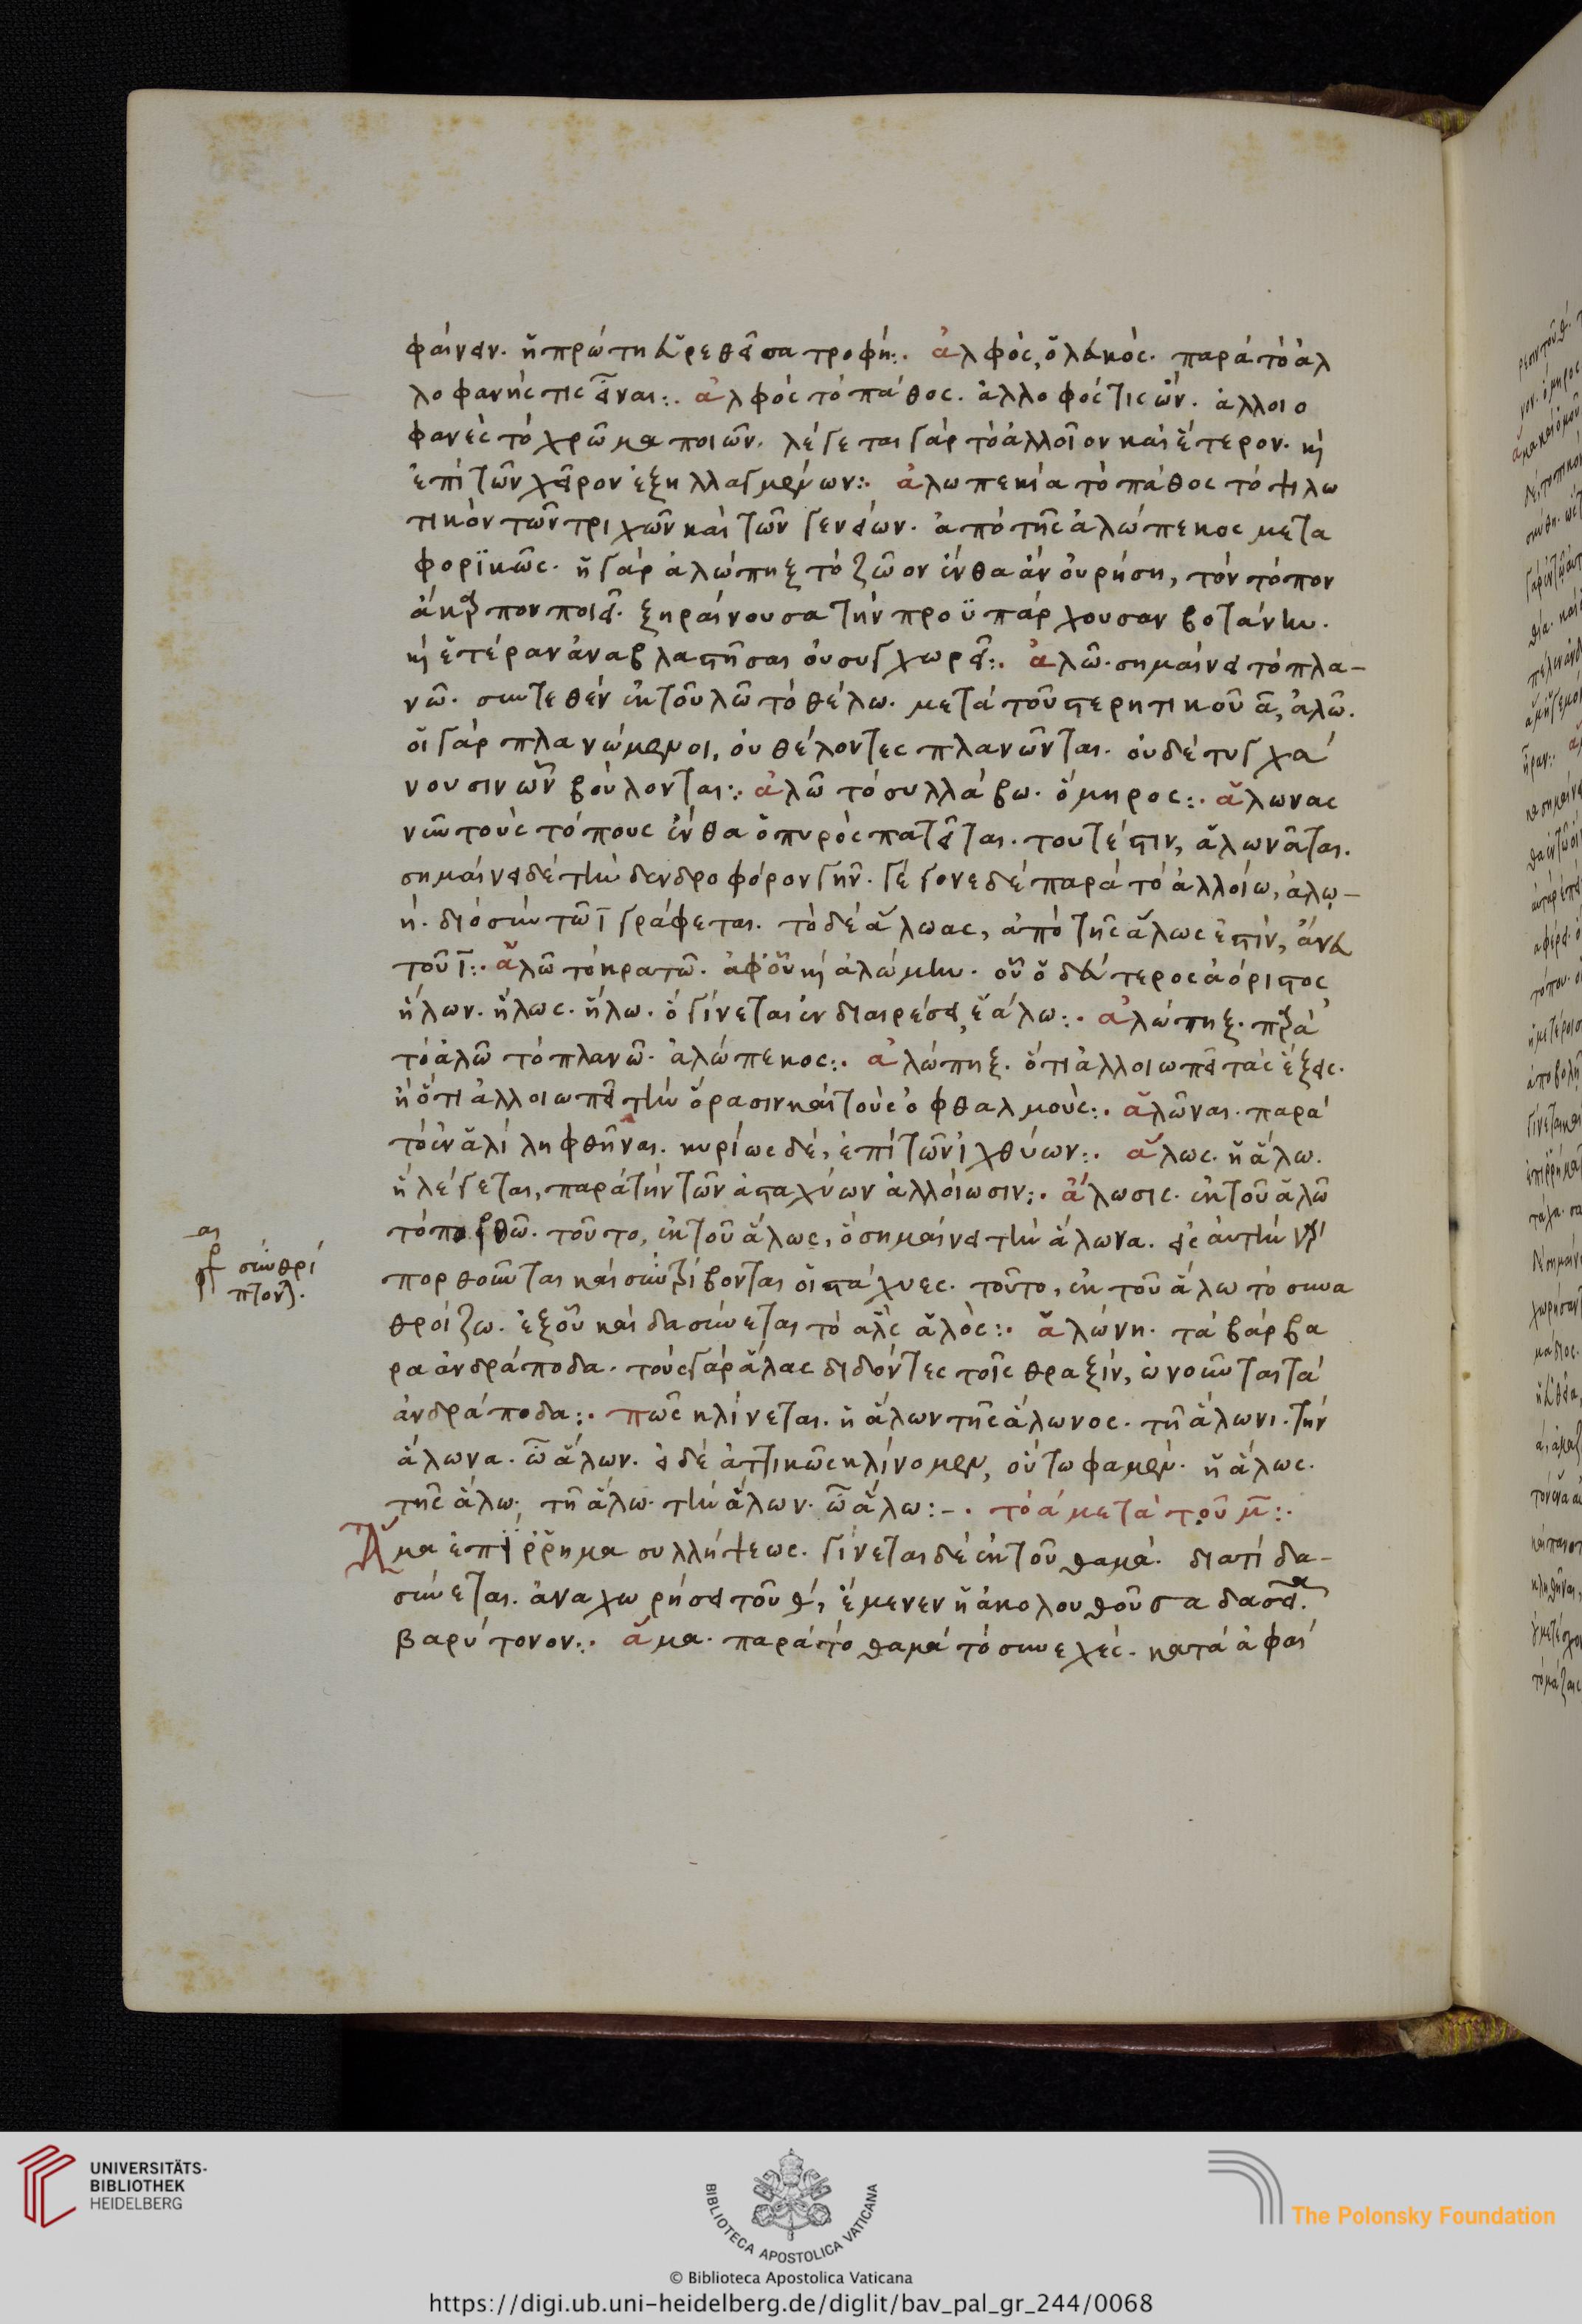 φαίνειν. ἡ πρώτη εὑρεθεῖσα τροφή:. ἀλφός, ὁ λευκός. παρὰ τὸ ἀλ
λοφανής τις εἶναι:. ἀλφὸς τὸ πάθος. ἀλλοφός τις ὤν. ἀλλοιο
φανὲς τὸ χρῶμα ποιῶν. λέγεται γὰρ τὸ ἀλλοῖον καὶ ἕτερον. καὶ
ἐπὶ τῶν χεῖρον ἐξηλλαγμένων:. ἀλωπεκία τὸ πάθος τὸ ψιλω
τικὸν τῶν τριχῶν καὶ τῶν γενείων. ἀπὸ τῆς ἀλώπεκος μετα
φορϊκῶς. ἡ γὰρ ἀλώπηξ τὸ ζῶον ἔνθα ἂν οὐρήση, τὸν τόπον
ἄκαρπον ποιεῖ. ξηραίνουσα τὴν προϋπάρχουσαν βοτάνην.
καὶ ἑτέραν ἀναβλαστῆσαι οὐ συγχωρεῖ:. ἀλῶ. σημαίνει τὸ πλα-
νῶ. συντεθὲν ἐκ τοῦ λῶ τὸ θέλω. μετὰ τοῦ στερητικοῦ α, ἀλῶ.
οἱ γὰρ πλανώμενοι, οὐ θέλοντες πλανῶνται. οὐδὲ τυγχά
νουσιν ὧν βούλονται:. ἀλῶ τὸ συλλάβω. ὅμηρος:. ἅλωνας
νῦν τοὺς τόπους ἔνθα ὁ πυρὸς πατεῖται. τουτέστιν, ἁλωνᾶται.
σημαίνει δὲ τὴν δενδροφόρον γῆν. γέγονε δὲ παρὰ τὸ ἀλλοίω, ἀλῳ-
ή. διὸ σὺν τῶ ῑ γράφεται. τὸ δὲ ἅλωας, ἀπὸ τῆς ἅλως ἐστὶν, ἄνευ
τοῦ ῑ:. ἁλῶ τὸ κρατῶ. ἀφ' οὗ καὶ ἁλώμην. οὗ ὁ δεύτερος ἀόριστος
ἥλων. ἥλως. ἥλω. ὃ γίνεται ἐν διαιρέσει, ἑάλω:. ἀλώπηξ. παρὰ
τὸ ἀλῶ τὸ πλανῶ. ἀλώπεκος:. ἀλώπηξ. ὅτι ἀλλοιωπεῖ τὰς ἕξεις.
ἢ ὅτι ἀλλοιωπεῖ τὴν ὅρασιν καὶ τοὺς ὀφθαλμούς:. ἁλῶναι. παρὰ
τὸ ἐν ἁλὶ ληφθῆναι. κυρίως δὲ, ἐπὶ τῶν ἰχθύων:. ἅλως. ἢ ἅλω.
ἣ λέγεται, παρὰ τὴν τῶν ἀσταχύων ἀλλοίωσιν:. ἅλωσις. ἐκ τοῦ ἁλῶ
τὸ πορθῶ. τοῦτο, ἐκ τοῦ ἅλως, ὃ σημαίνει τὴν ἅλωνα. εἰς αὐτὴν γὰρ
πορθοῦνται καὶ συντρίβονται οἱ στάχυες. τοῦτο, ἐκ τοῦ ἅλω τὸ συνα
θροίζω. ἐξ οὗ καὶ δασύνεται τὸ ἅλς ἁλός:. ἁλώνη. τὰ βάρβα
ρα ἀνδράποδα. τοὺς γὰρ ἅλας διδόντες τοῖς θραξὶν, ὠνοῦνται τὰ
ἀνδράποδα:. πῶς κλίνεται. ἡ ἅλων τῆς ἅλωνος. τῆ ἅλωνι. τὴν
ἅλωνα. ὦ ἅλων. εἰ δὲ ἀττικῶς κλίνομεν, οὕτω φαμέν. ἡ ἅλως.
τῆς ἅλω. τῆ ἅλω. τὴν ἅλων. ὦ ἅλω:-. τὸ ἀ μετὰ τοῦ μ:.
Ἅμα ἐπίρρημα συλλήψεως. γίνεται δὲ ἐκ τοῦ θαμά. διατί δα-
σύνεται. ἀναχωρήσει τοῦ θ, ἔμενεν ἡ ἀκολουθοῦσα δασεῖα.
βαρύτονον:. ἅμα. παρὰ τὸ θαμὰ τὸ συνεχές. κατὰ ἀφαί
συνθρί
πτον
UNIVERSITÄTS-
BIBLIOTHEK
HEIDELBERG
BIBLIOTECA APOSTOLICA VATICANA
The Polonsky Foundation
© Biblioteca Apostolica Vaticana
https://digi.ub.uni-heidelberg.de/diglit/bav_pal_gr_244/0068